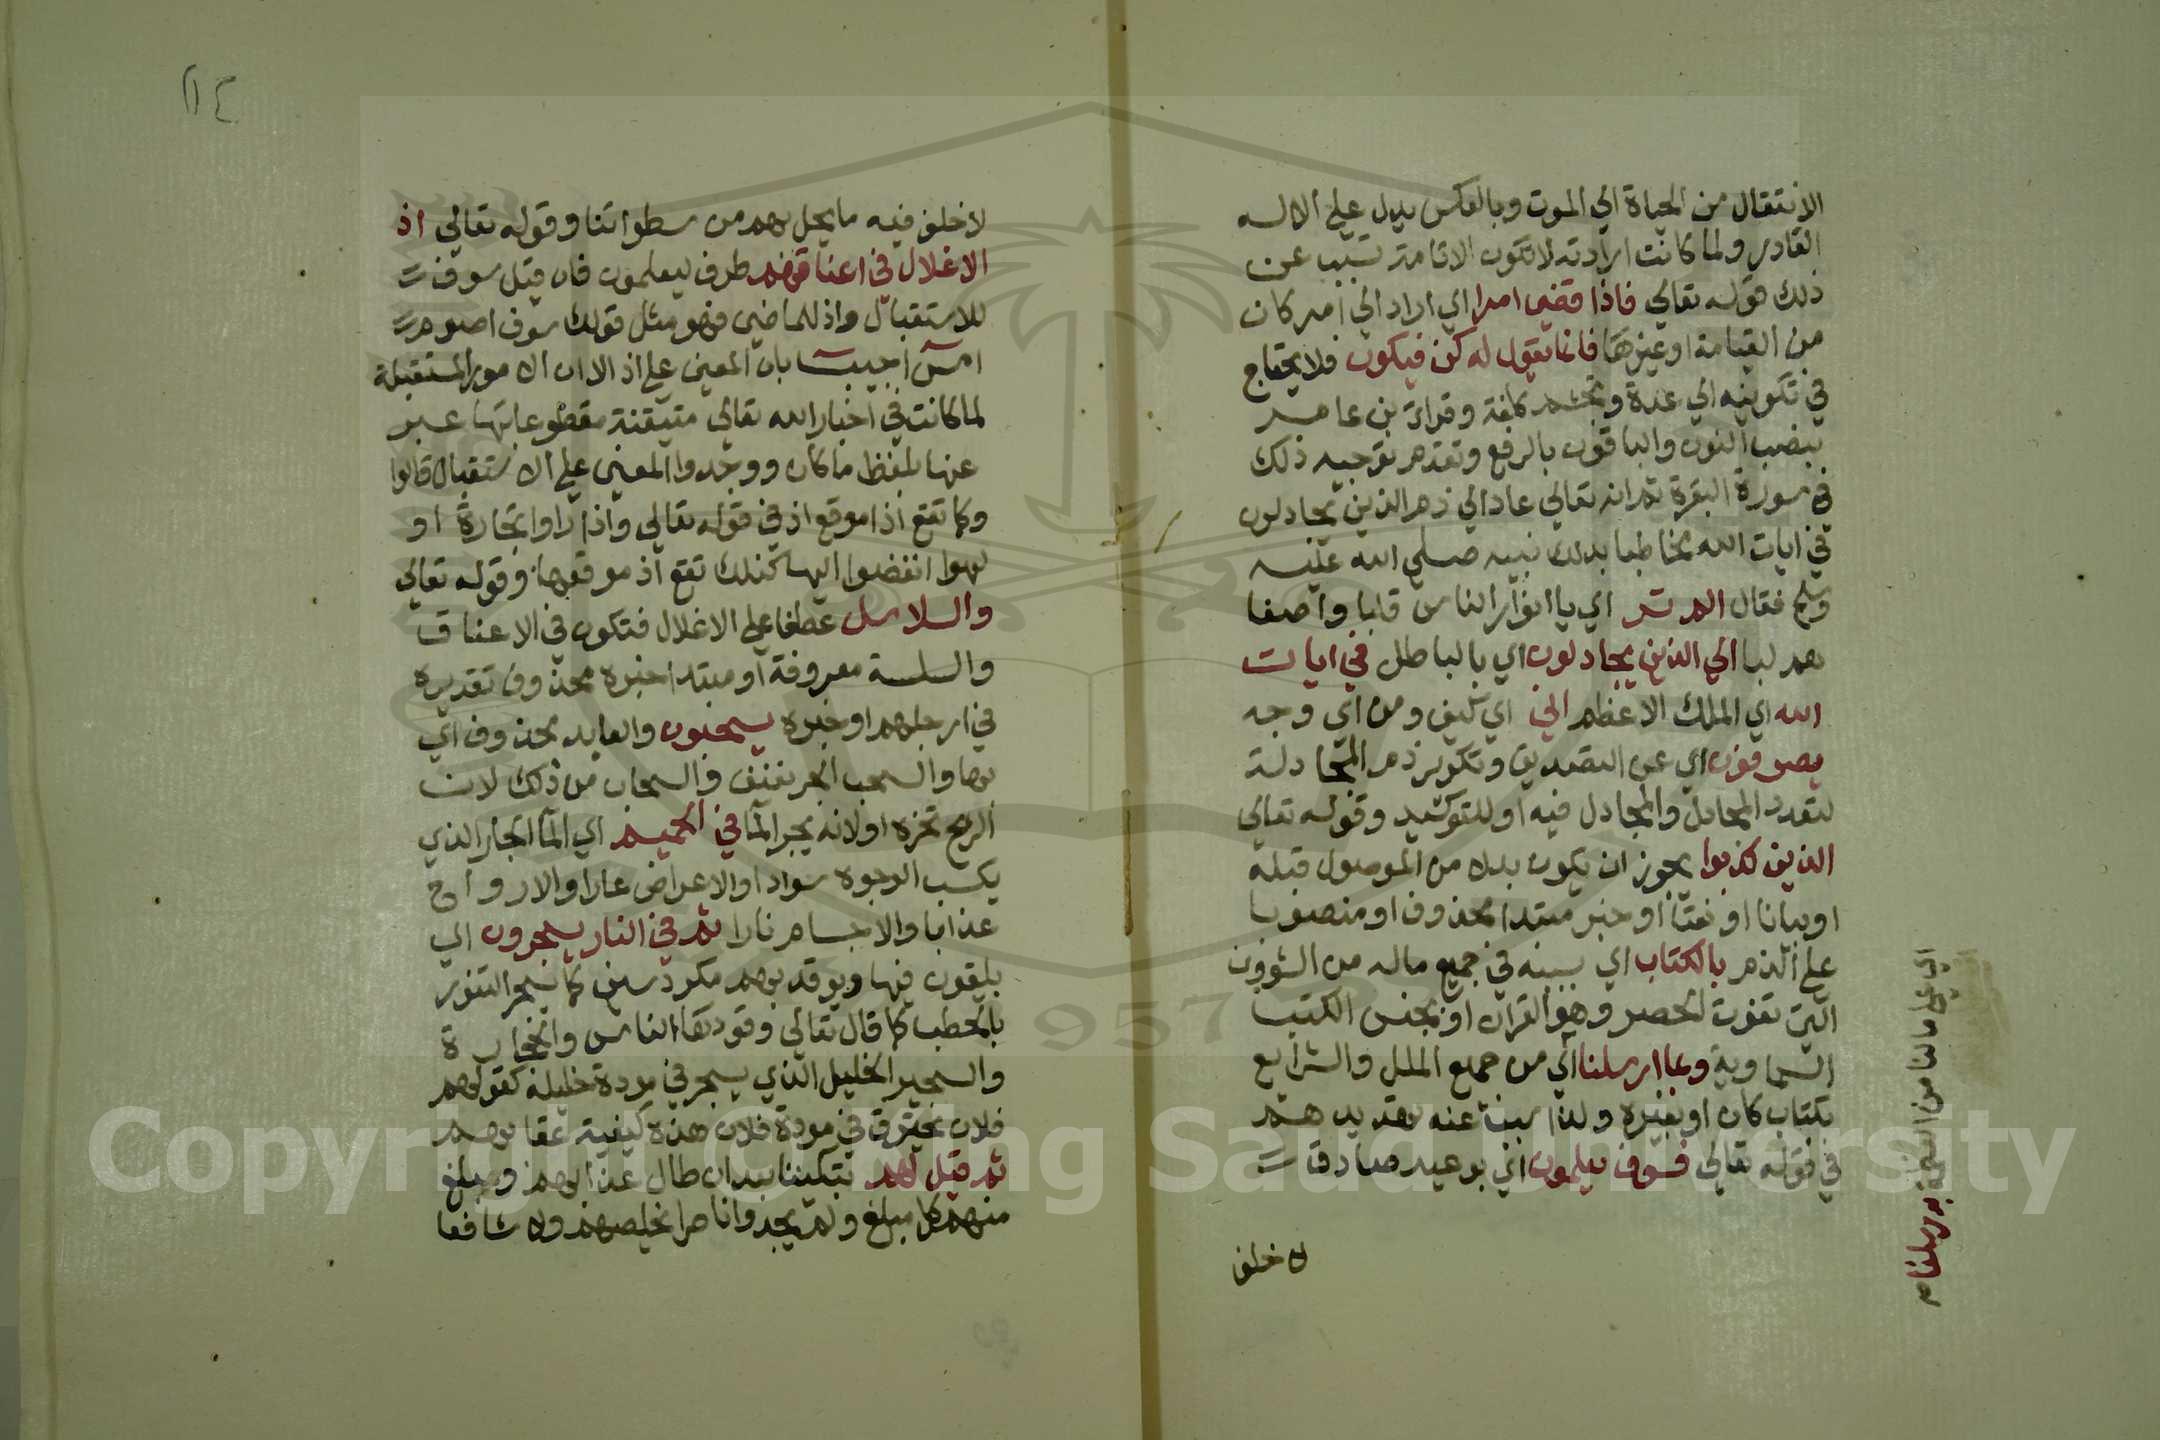 الانتقال من الحياة الي الموت وبالعكس يدل علي الاله
القادر ولما كانت ارادته لا تكون الا تامة تسبب عن
ذلك قوله تعالي فاذا قضي امرا اي اراد اي امر كان
من القيامة او غيرها فانما يقول له كن فيكون فلا يحتاج
في تكوينه الي عدة وتجشم كلفة وقراة بن عامر
بنصب النون والباقون بالرفع وتقدم توجيه ذلك
في سورة البقرة ثم انه تعالي عاد الي ذم الذين يجادلون
في ايات الله مخاطبا بذلك نبيه صلي الله عليه
وسلم فقال الم تر اي يا انور الناس قلبا واصفا
هم لبا الي الذين يجادلون اي بالباطل في ايات
الله اي الملك الاعظم اني اي كيف ومن اي وجه
يصرفون اي عن التصديق وتكرير ذم المجادلة
لتعدد المجادل والمجادل فيه او للتوكيد وقوله تعالي
الذين كذبوا يجوز ان يكون بدلا من الموصول قبله
او بيانا او نعتا او خبر مبتدا محذوف او منصوبا
علي الذم بالكتاب اي بسببه في جميع ماله من الشؤون
التي تفوت الحصر وهو القران او بجنس الكتب
السماوية وبما ارسلنا اي من جميع الملل والشرايع
بكتاب كان او بغيره ولذا تسبب عنه تهديد هم
في قوله تعالي فسوف يعلمون اي بوعيد صادق
لا خلف
اي علي مالنا من العظمة به رسلنا صح
١١٤
لا خلف فيه ما يحل بهم من سطواتنا وقوله تعالي اذ
الاغلال في اعناقهم ظرف ليعلمون فان قيل سوف
للاستقبال واذ للماضي فهو مثل قولك سوف اصوم
امس اجيب بان المعني علي اذ الا ان الامور المستقبلة
لما كانت في اخبار الله تعالي متيقنة مقطوعا بها عبر
عنها بلفظ ما كان ووجدوا المعني علي الاستقبال قالوا
وكما تقع اذا موقع اذ في قوله تعالي واذا راوا تجارة او
لهوا انفضوا اليها كذلك تقع اذ موقعها وقوله تعالي
والسلاسل عطفا علي الاغلال فتكون في الاعناق
والسلسة معروفة او مبتدا خبره محذوف تقديره
في ارجلهم او خبره يسحبون والعايد محذوف اي
بها والسحب الجر بعنف والسحاب من ذلك لان
الريح تجره او لانه يجر الما في الحميم اي الما الحار الذي
يكسب الوجوه سوادا والاعراض عارا والارواح
عذابا والاجسام نارا ثم في النار يسجرون اي
يلقون فيها ويوقد بهم مكردسين كما يسجر التنور
بالحطب كما قال تعالي وقودها الناس والحجارة
والسجير الخليل الذي يسجر في مودة خليله كقولهم
فلان يحترق في مودة فلان هذه كيفية عقابهم
ثم قيل لهم تبكيتا بعد ان طال عذابهم وبلغ
منهم كل مبلغ ولم يجدوا ناصرا يخلصهم ولا شافعا